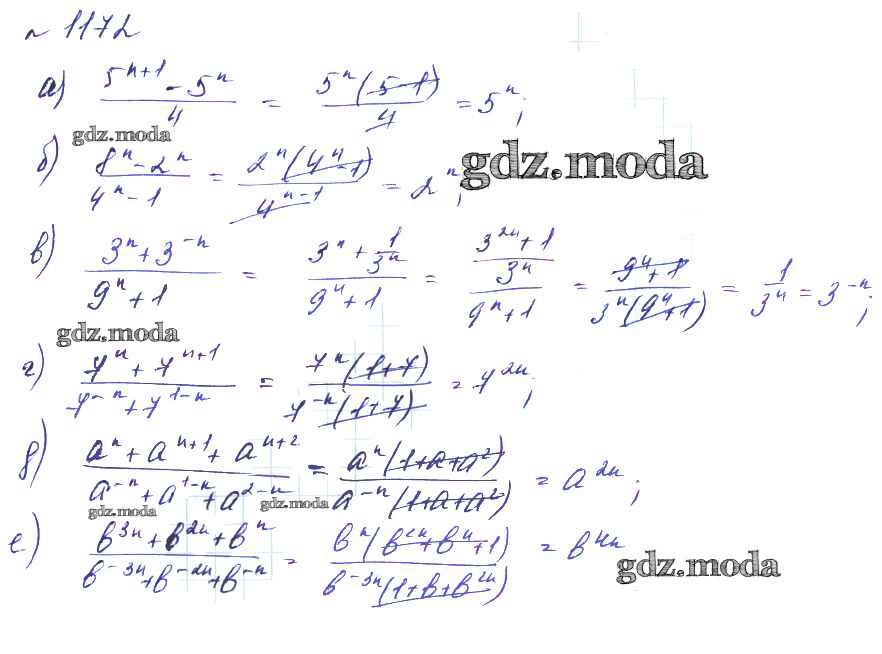 № 1172
а) (5ⁿ⁺¹ - 5ⁿ)/4 = 5ⁿ(5-1)/4 = 5ⁿ;
gdz.moda
б) (8ⁿ - 2ⁿ)/(4ⁿ - 1) = 2ⁿ(4ⁿ-1)/(4ⁿ-1) = 2ⁿ;
gdz.moda
в) (3ⁿ + 3⁻ⁿ)/(9ⁿ + 1) = (3ⁿ + 1/3ⁿ)/(9ⁿ + 1) = ((3²ⁿ + 1)/3ⁿ)/(9ⁿ + 1) = (9ⁿ + 1)/(3ⁿ(9ⁿ+1)) = 1/3ⁿ = 3⁻ⁿ;
gdz.moda
г) (7ⁿ + 7ⁿ⁺¹)/(7⁻ⁿ + 7¹⁻ⁿ) = 7ⁿ(1+7)/(7⁻ⁿ(1+7)) = 7²ⁿ;
д) (aⁿ + aⁿ⁺¹ + aⁿ⁺²)/(a⁻ⁿ + a¹⁻ⁿ + a²⁻ⁿ) = aⁿ(1+a+a²)/(a⁻ⁿ(1+a+a²)) = a²ⁿ;
gdz.moda gdz.moda
е) (b³ⁿ + b²ⁿ + bⁿ)/(b⁻³ⁿ + b⁻²ⁿ + b⁻ⁿ) = bⁿ(b²ⁿ+bⁿ+1)/(b⁻³ⁿ(1+b+b²ⁿ)) = b⁴ⁿ
gdz.moda